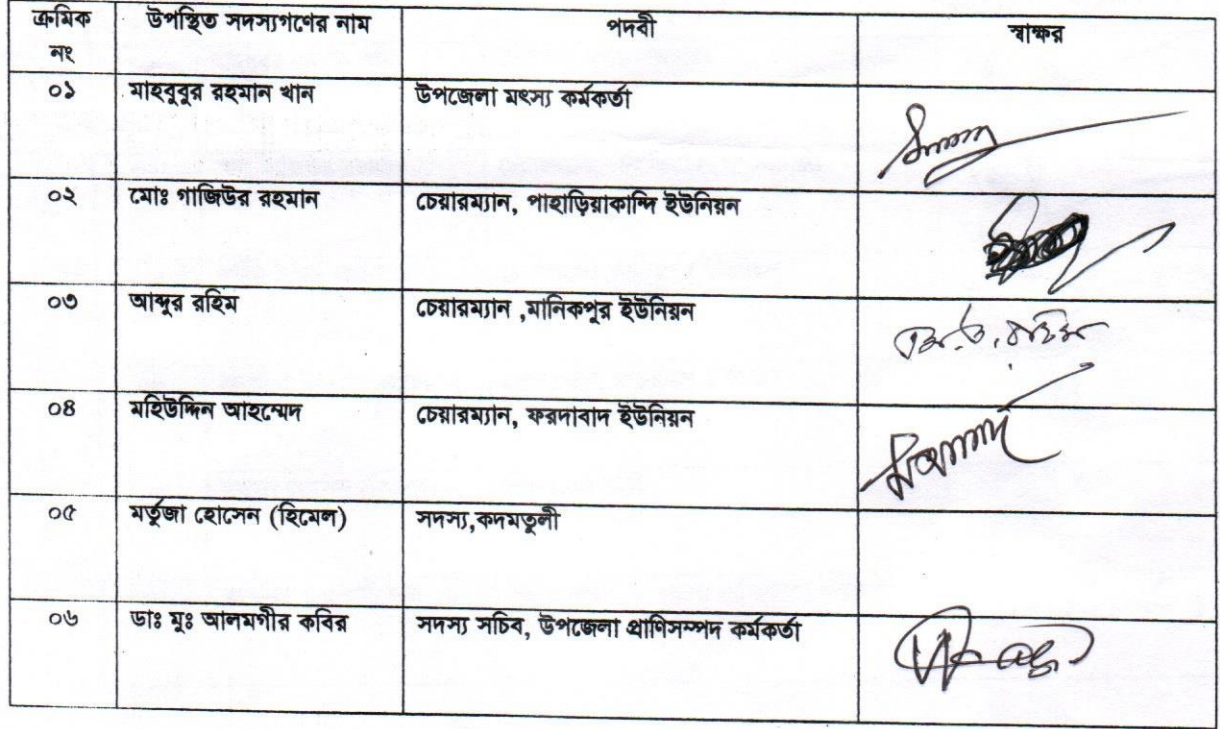 ক্রমিক নং উপস্থিত সদস্যগণের নাম পদবী স্বাক্ষর
০১ মাহবুবুর রহমান খান উপজেলা মৎস্য কর্মকর্তা
০২ মোঃ গাজিউর রহমান চেয়ারম্যান, পাহাড়িয়াকান্দি ইউনিয়ন
০৩ আব্দুর রহিম চেয়ারম্যান ,মানিকপুর ইউনিয়ন
০৪ মহিউদ্দিন আহম্মেদ চেয়ারম্যান, ফরদাবাদ ইউনিয়ন
০৫ মর্তুজা হোসেন (হিমেল) সদস্য,কদমতুলী
০৬ ডাঃ মুঃ আলমগীর কবির সদস্য সচিব, উপজেলা প্রাণিসম্পদ কর্মকর্তা